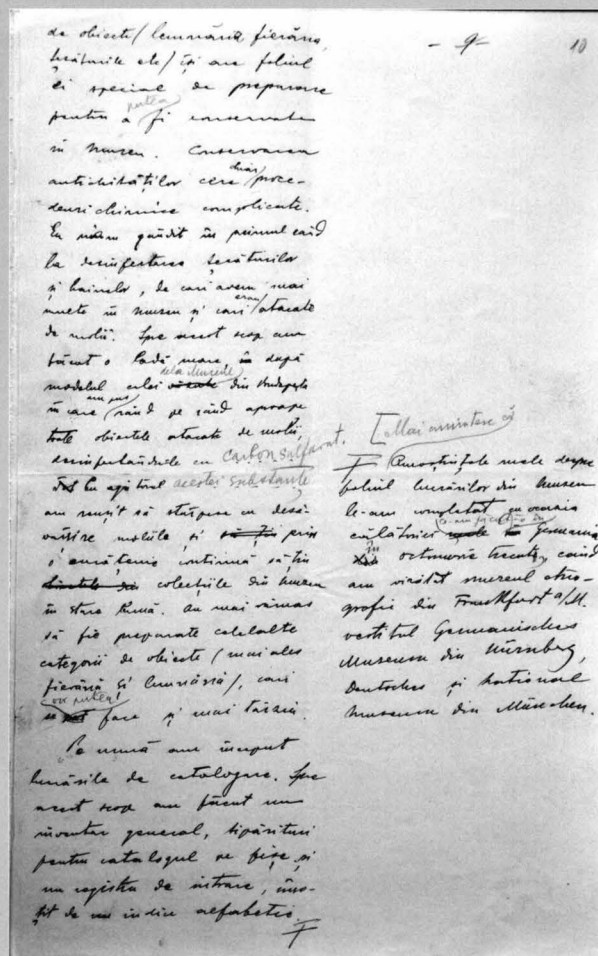 - 9 - 10
de obiecte (lemnărie, fierărie,
țesăturile etc) își are felul
ei special de preparare
pentru a putea fi conservate
în muzeu. Conservarea
antichităților cere chiar proce-
deuri chimice complicate.
Eu m'am gândit în primul rând
la desinfectarea țesăturilor
și hainelor, de cari avem mai
multe în muzeu și cari erau atacate
de molii. Spre acest scop am
făcut o ladă mare, după
modelul celei dela Muzeele din Budapesta
în care am pus rând pe rând aproape
toate obiectele atacate de molii,
desinfectându-le cu carbon sulfurat.
Cu ajutorul acestei substanțe
am reușit să stârpesc cu desă-
vârșire moliile și prin
o curățenie continuă să țin
colecțiile din muzeu
în stare bună. Au mai rămas
să fie preparate celelalte
categorii de obiecte (mai ales
fierăria și lemnăria), cari
se vor putea face și mai târziu.
Pe urmă am început
lucrările de catalogare. Spre
acest scop am făcut un
inventar general, tipărituri
pentru catalogul pe fișe și
un registru de intrare, înso-
țit de un indice alfabetic.
[Mai amintesc că
Cunoștințele mele despre
felul lucrărilor din muzeu
le-am completat cu ocazia
călătoriei ce-am făcut-o în Germania
în octomvrie trecut, când
am vizitat muzeul etno-
grafic din Frankfurt a/M.
vestitul Germanisches
Museum din Nürnberg,
Deutsches și National
Museum din München.